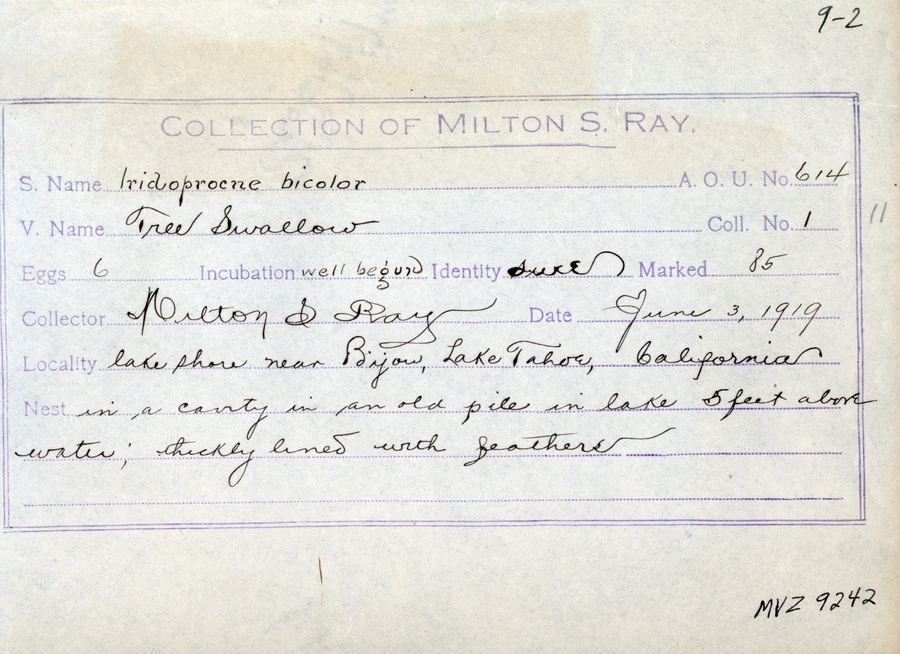 9-2
COLLECTION OF MILTON S. RAY.
S. Name Iridoprocne bicolor A. O. U. No. 614
V. Name Tree Swallow Coll. No. 1 11
Eggs 6 Incubation well begun Identity sure Marked 85
Collector Milton S Ray Date June 3, 1919
Locality lake shore near Bijou, Lake Tahoe, California
Nest in a cavity in an old pile in lake 5 feet above
water; thickly lined with feathers
MVZ 9242